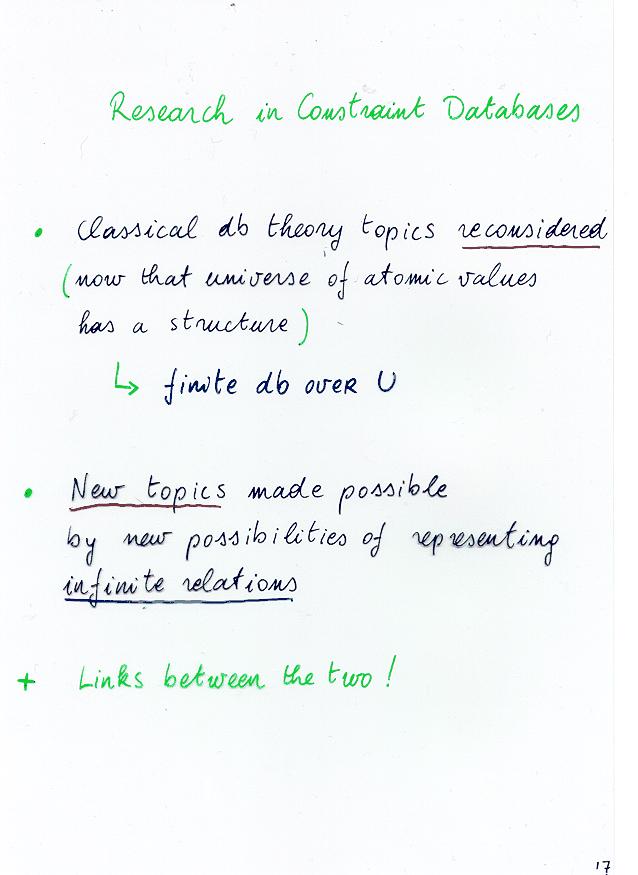 Research in Constraint Databases
• Classical db theory topics reconsidered
(now that universe of atomic values
has a structure)
↳ finite db over U
• New topics made possible
by new possibilities of representing
infinite relations
+ Links between the two!
17